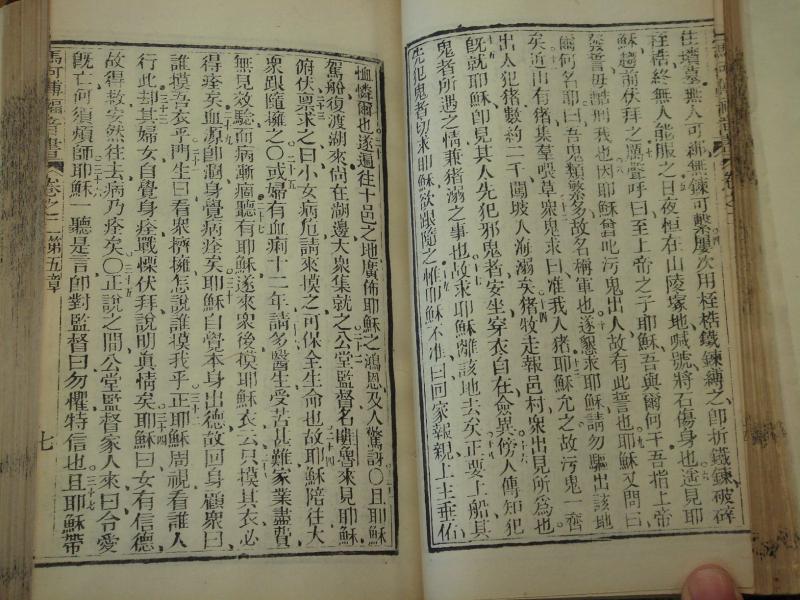 住墳墓、無人可縛、無鍊可繫、屢次用桎梏鐵鍊縛之、卽折鐵鍊、破碎
桎梏、終無人能服之、日夜恒在山陵塚地、喊號、將石傷身也、遙見耶
穌、趨前伏拜之、厲聲呼曰、至上帝之子耶穌、吾與爾何干、吾指上帝
發誓、毋酷刑我也、因耶穌曾叱污鬼出人、故有此誓也、耶穌又問曰、
爾何名、卽曰、吾鬼類繁多、故名稱軍也、遂懇求耶穌、請勿驅出該地
矣、近山有猪集羣喂草、衆鬼求曰、准我入猪、耶穌允之、故污鬼一齊
出人犯猪、數約二千、闖坡入海溺矣、猪牧走報邑村、衆出見所爲也、
旣就耶穌、卽見其人先犯邪鬼者、安坐穿衣自在、僉異、傍人傳知犯
鬼者所遇之情、兼猪溺之事也、故求耶穌離該地去矣、正要上船、其
先犯鬼者、切求耶穌欲跟隨之、惟耶穌不准、曰、回家報親、上主垂佑
恤憐爾也、遂遍往十邑之地、廣佈耶穌之鴻恩、及人驚訝〇且耶穌
駕船復渡湖來、尙在湖邊、大衆集就之、公堂監督、名睚魯、來見耶穌
俯伏禀求之曰、小女病危、請來摸之、可保全生命也、故耶穌陪往、大
衆跟隨擁之〇或婦有血痢十二年、請多醫生、受苦甚難、家業盡費
無見效驗、而病漸痼、聽有耶穌、遂來衆後、摸耶穌衣、云、只摸其衣、必
得痊矣、血源卽涸、身覺病痊矣、耶穌自覺本身出德、故回身顧衆曰
誰摸吾衣乎、門生曰、看衆擠擁、怎說誰摸我乎、正耶穌周視看誰人
行此、却其婦女自覺身痊、戰慄伏拜、說明眞情矣、耶穌曰、女有信德
故得救、安然往去、病乃痊矣〇正說之間、公堂監督家人來曰、令愛
旣亡、何須煩師、耶穌一聽是言、卽對監督曰、勿懼、特信也、且耶穌帶
馬可傳福音書 卷之二 第五章
七